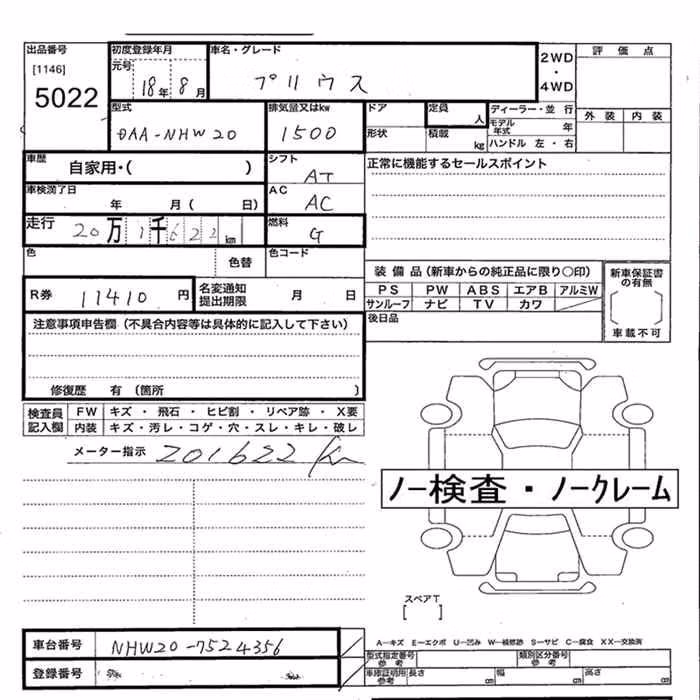 出品番号 初度登録年月 車名・グレード 2WD・4WD 評価点
[1146] 元号 18年 8月 プリウス
5022
型式 排気量又はkw ドア 定員 人 ディーラー・並行 外装 内装
DAA-NHW20 1500 形状 積載 kg モデル年式 年
ハンドル 左・右
車歴 シフト 正常に機能するセールスポイント
自家用・( ) AT
車検満了日 AC
年 月( 日) AC
走行 20万1千622km 燃料 G
色 色替 色コード
装備品(新車からの純正品に限り〇印) 新車保証書の有無
R券 11410円 名変通知提出期限 月 日 PS PW ABS エアB アルミW
サンルーフ ナビ TV カワ [ ]
注意事項申告欄(不具合内容等は具体的に記入して下さい) 後日品 車載不可
修復歴 有(箇所 )
検査員記入欄 FW キズ・飛石・ヒビ割・リペア跡・X要
内装 キズ・汚レ・コゲ・穴・スレ・キレ・破レ
メーター指示 201622km
ノー検査・ノークレーム
スペアT
[ ]
車台番号 NHW20-7524356
登録番号
A−キズ E−エクボ U−凹み W−補修跡 S−サビ C−腐食 XX−交換済
型式指定番号 参考 類別区分番号 参考
車庫証明用 参考 長さ cm 幅 cm 高さ cm